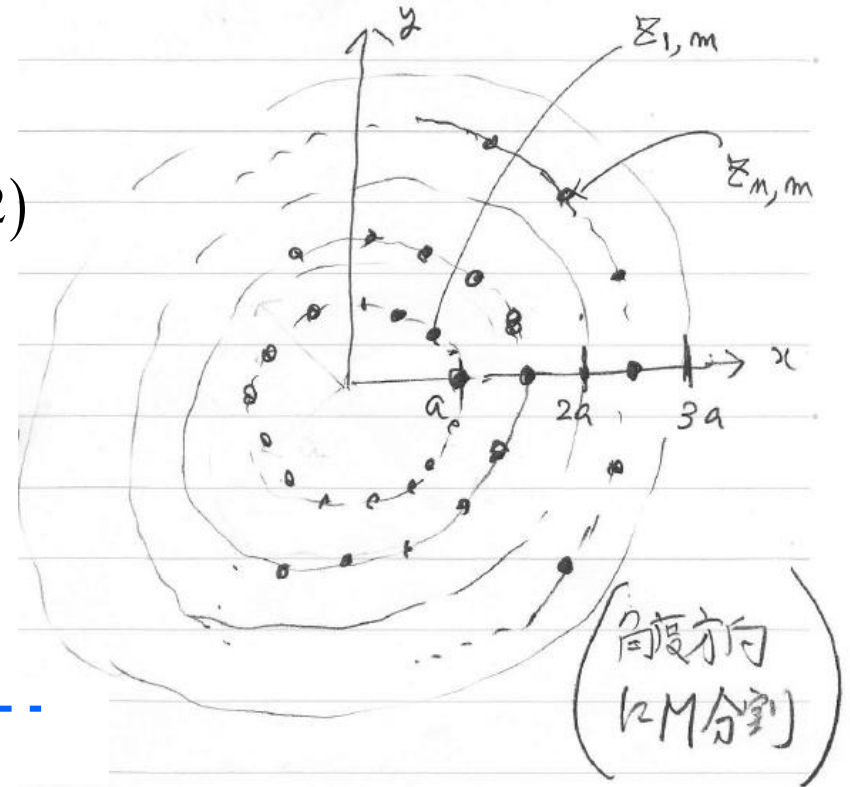 y
z₁,ₘ
zₙ,ₘ
2)
x
a
2a
3a
角度方向
にM分割